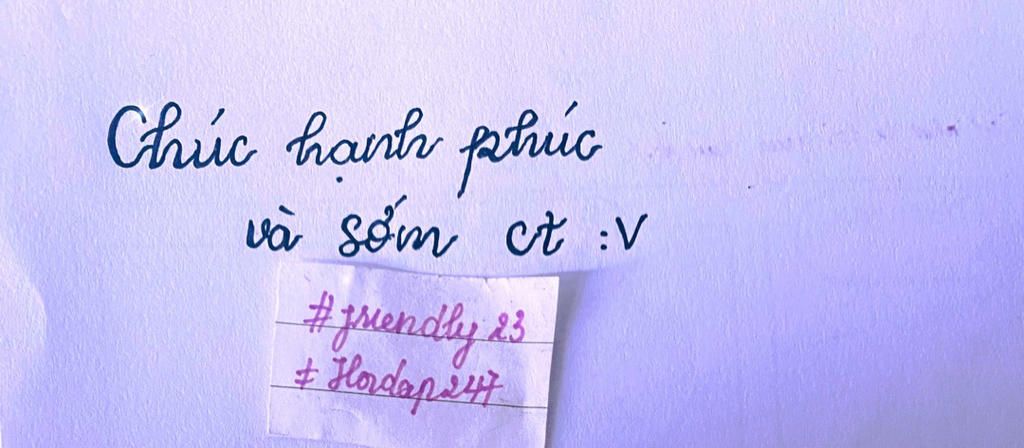 Chúc hạnh phúc
và sớm ct :V
#friendly23
#Hoidap247